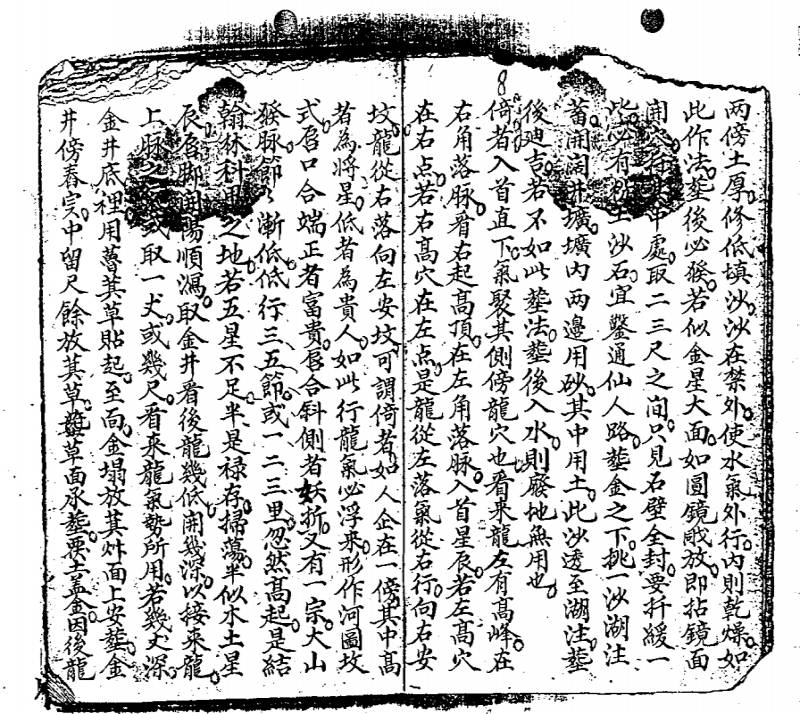 8
両傍土厚修低填沙沙在禁外使水氣外行内則乾燥如
此作法塟後必發若似金星大面如圓鏡戝放即拈鏡面
開 中處取二三尺之间只見石壁全封要扦緩一
些必有 土沙石宜鑿通仙人路塟金之下挑一沙湖注
蓄開闊井壙壙内两邉用砂其中用土此沙透至湖注塟
後廸吉若不如此塟法塟後入水則廢地無用也
倚者入首直下氣聚其側傍龍穴也看来龍左有高峰在
右角落脉看右起高頂在左角落脉入首星辰若左高穴
在右点若右高穴在左点是龍從左落氣從右行向右安
坟龍從右落向左安坟可謂倚者如人企在一傍其中高
者為将星低者為貴人如此行龍氣必浮来形作河圖坟
式唇口合端正者富貴唇合斜側者妖折又有一宗大山
發脉節々漸低低行三五節或一二三里忽然高起是結
翰林科甲之地若五星不足半是祿存掃蕩半似木土星
辰唇脚開陽順瀉取金井看後龍幾低開幾深以接来龍
上脉之 或取一丈或幾尺看来龍氣勢所用若幾丈深
金井底裡用蓸萁草貼起至面金塌放萁艸面上安塟金
井傍舂实中留尺餘放萁草 草面承塟 土盖金因後龍